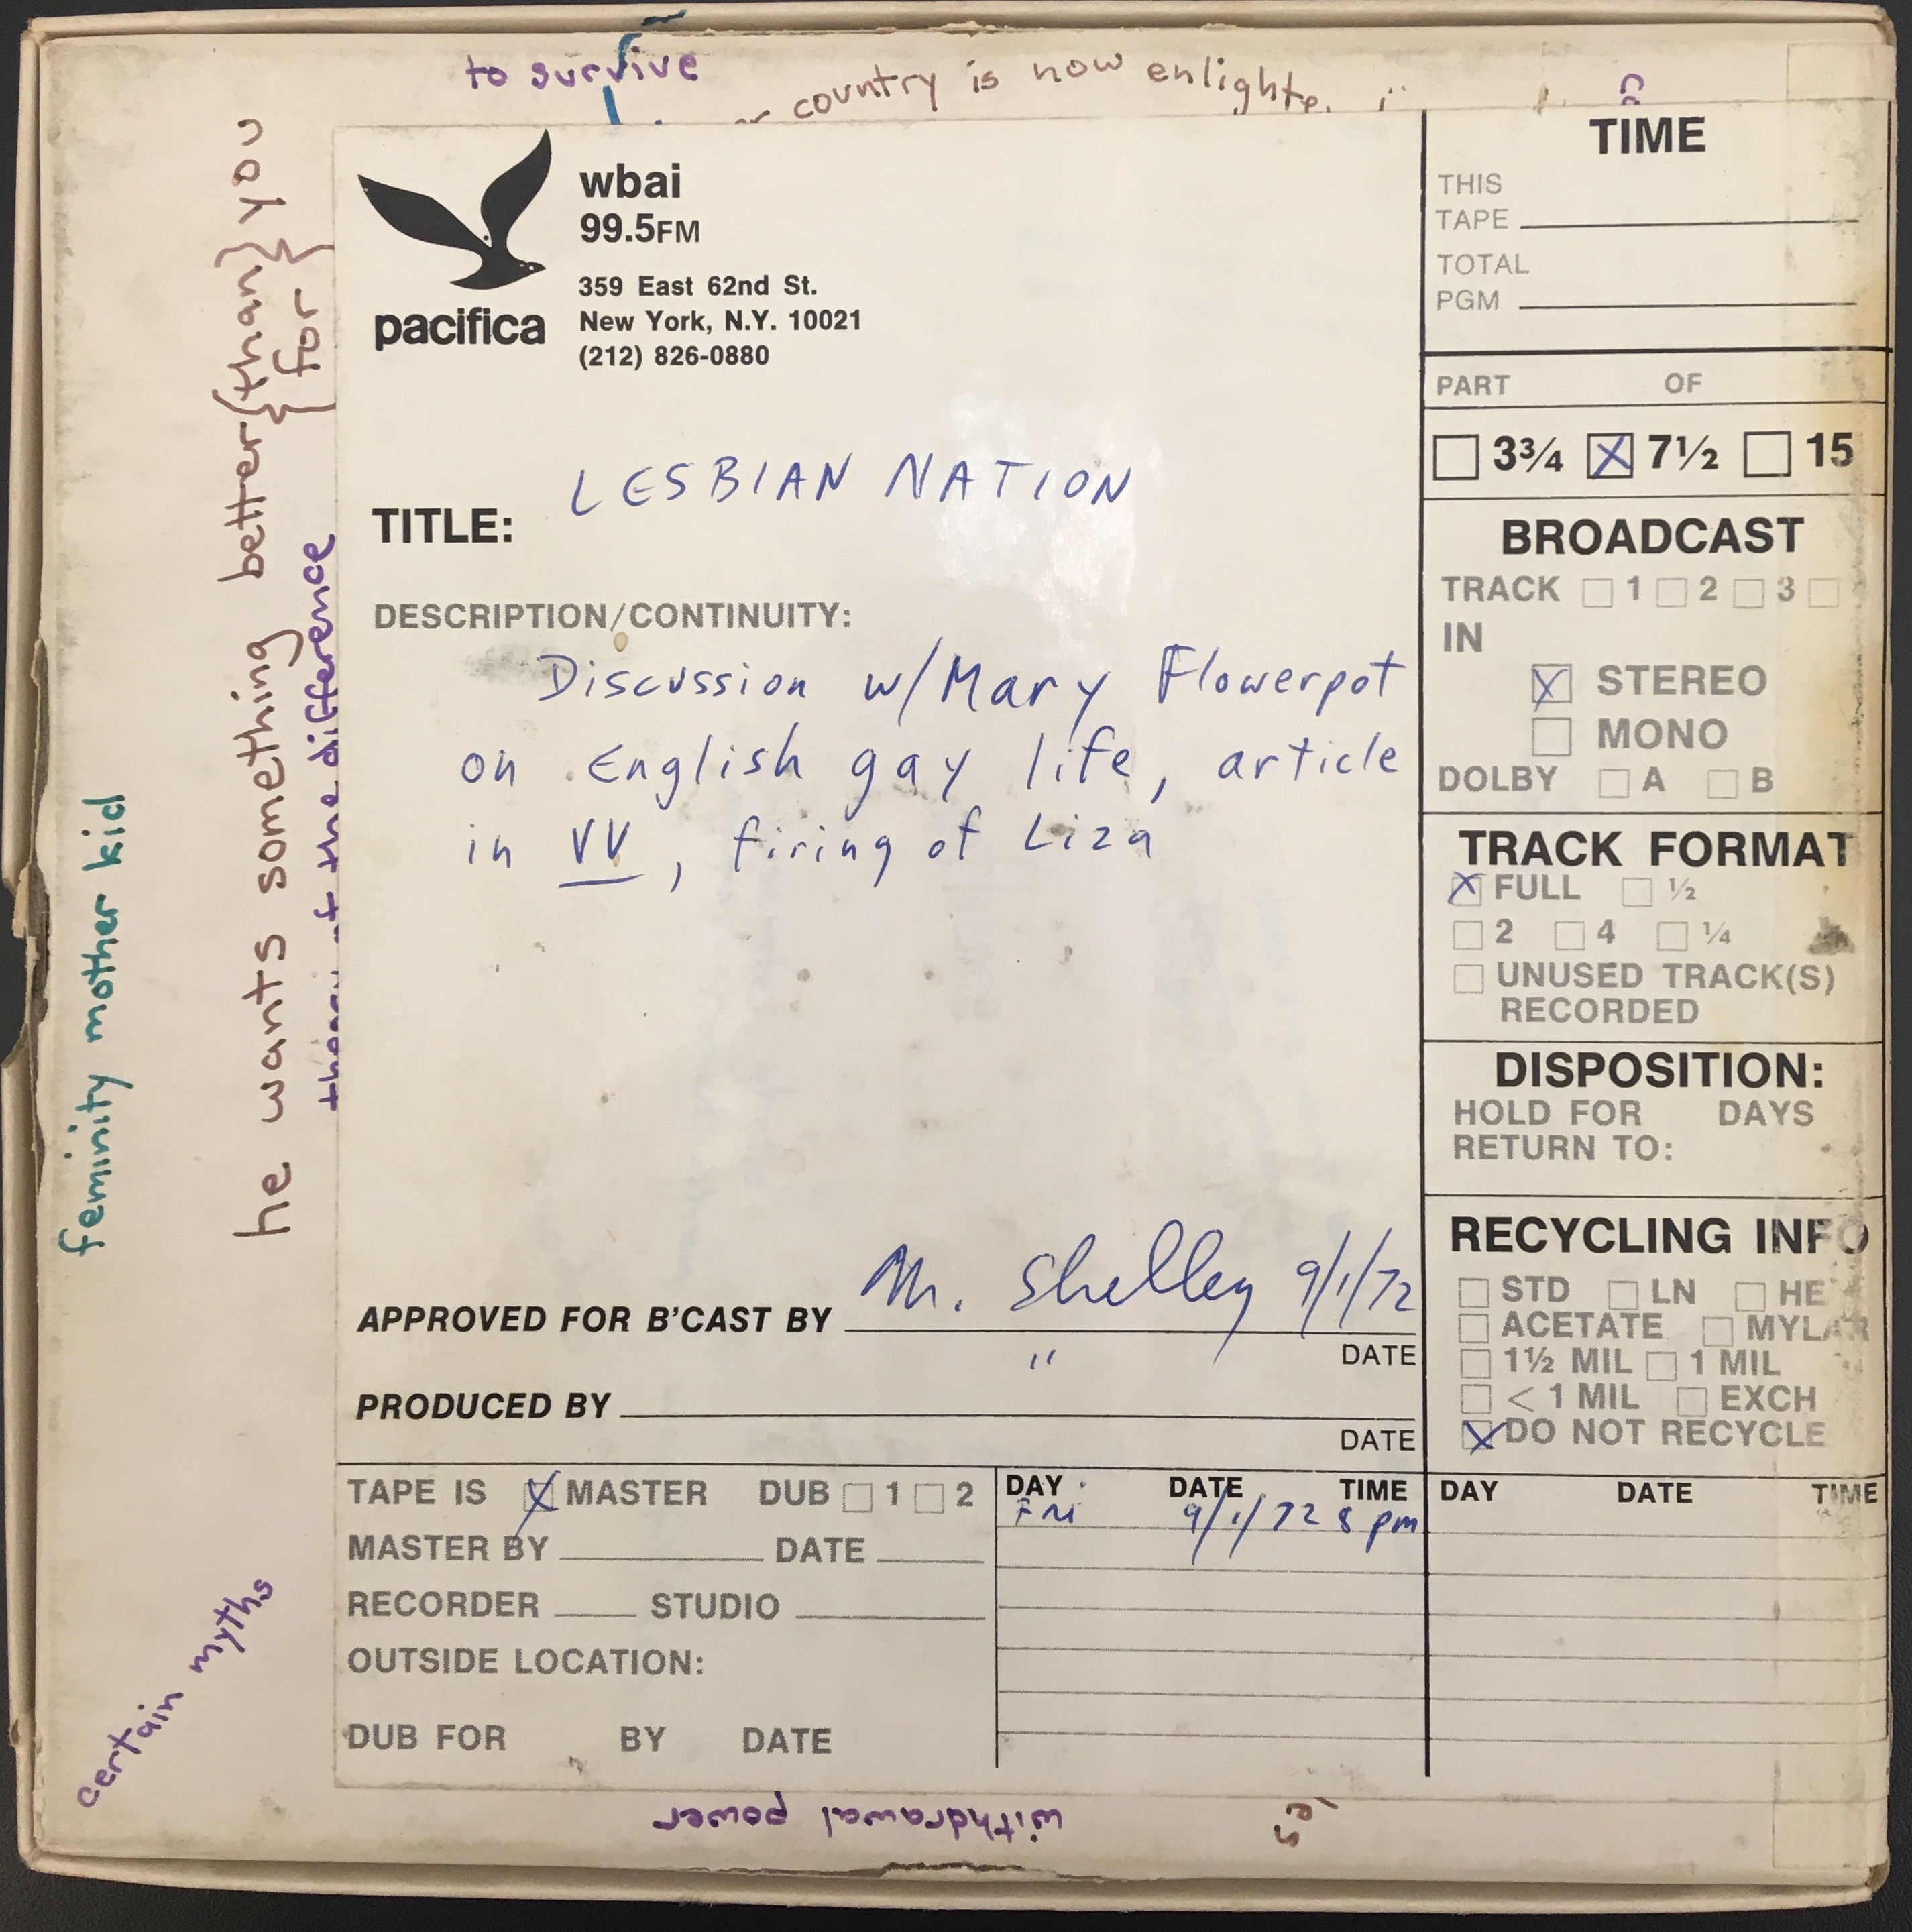 to survive
country is now enlighte
wbai
99.5FM
359 East 62nd St.
New York, N.Y. 10021
(212) 826-0880
pacifica
TITLE: LESBIAN NATION
DESCRIPTION/CONTINUITY:
Discussion w/Mary Flowerpot
on English gay life, article
in VV, firing of Liza
APPROVED FOR B'CAST BY M. Shelley 9/1/72
DATE
PRODUCED BY "
DATE
TAPE IS X MASTER DUB 1 2
MASTER BY DATE
RECORDER STUDIO
OUTSIDE LOCATION:
DUB FOR BY DATE
DAY DATE TIME
Fri 9/1/72 8 pm
TIME
THIS
TAPE
TOTAL
PGM
PART OF
3¾ X 7½ 15
BROADCAST
TRACK 1 2 3
IN
X STEREO
MONO
DOLBY A B
TRACK FORMAT
X FULL ½
2 4 ¼
UNUSED TRACK(S)
RECORDED
DISPOSITION:
HOLD FOR DAYS
RETURN TO:
RECYCLING INFO
STD LN HE
ACETATE MYLAR
1½ MIL 1 MIL
< 1 MIL EXCH
X DO NOT RECYCLE
DAY DATE TIME
feminity mother kid
he wants something better {than} you
{for}
the difference
certain myths
withdrawal power